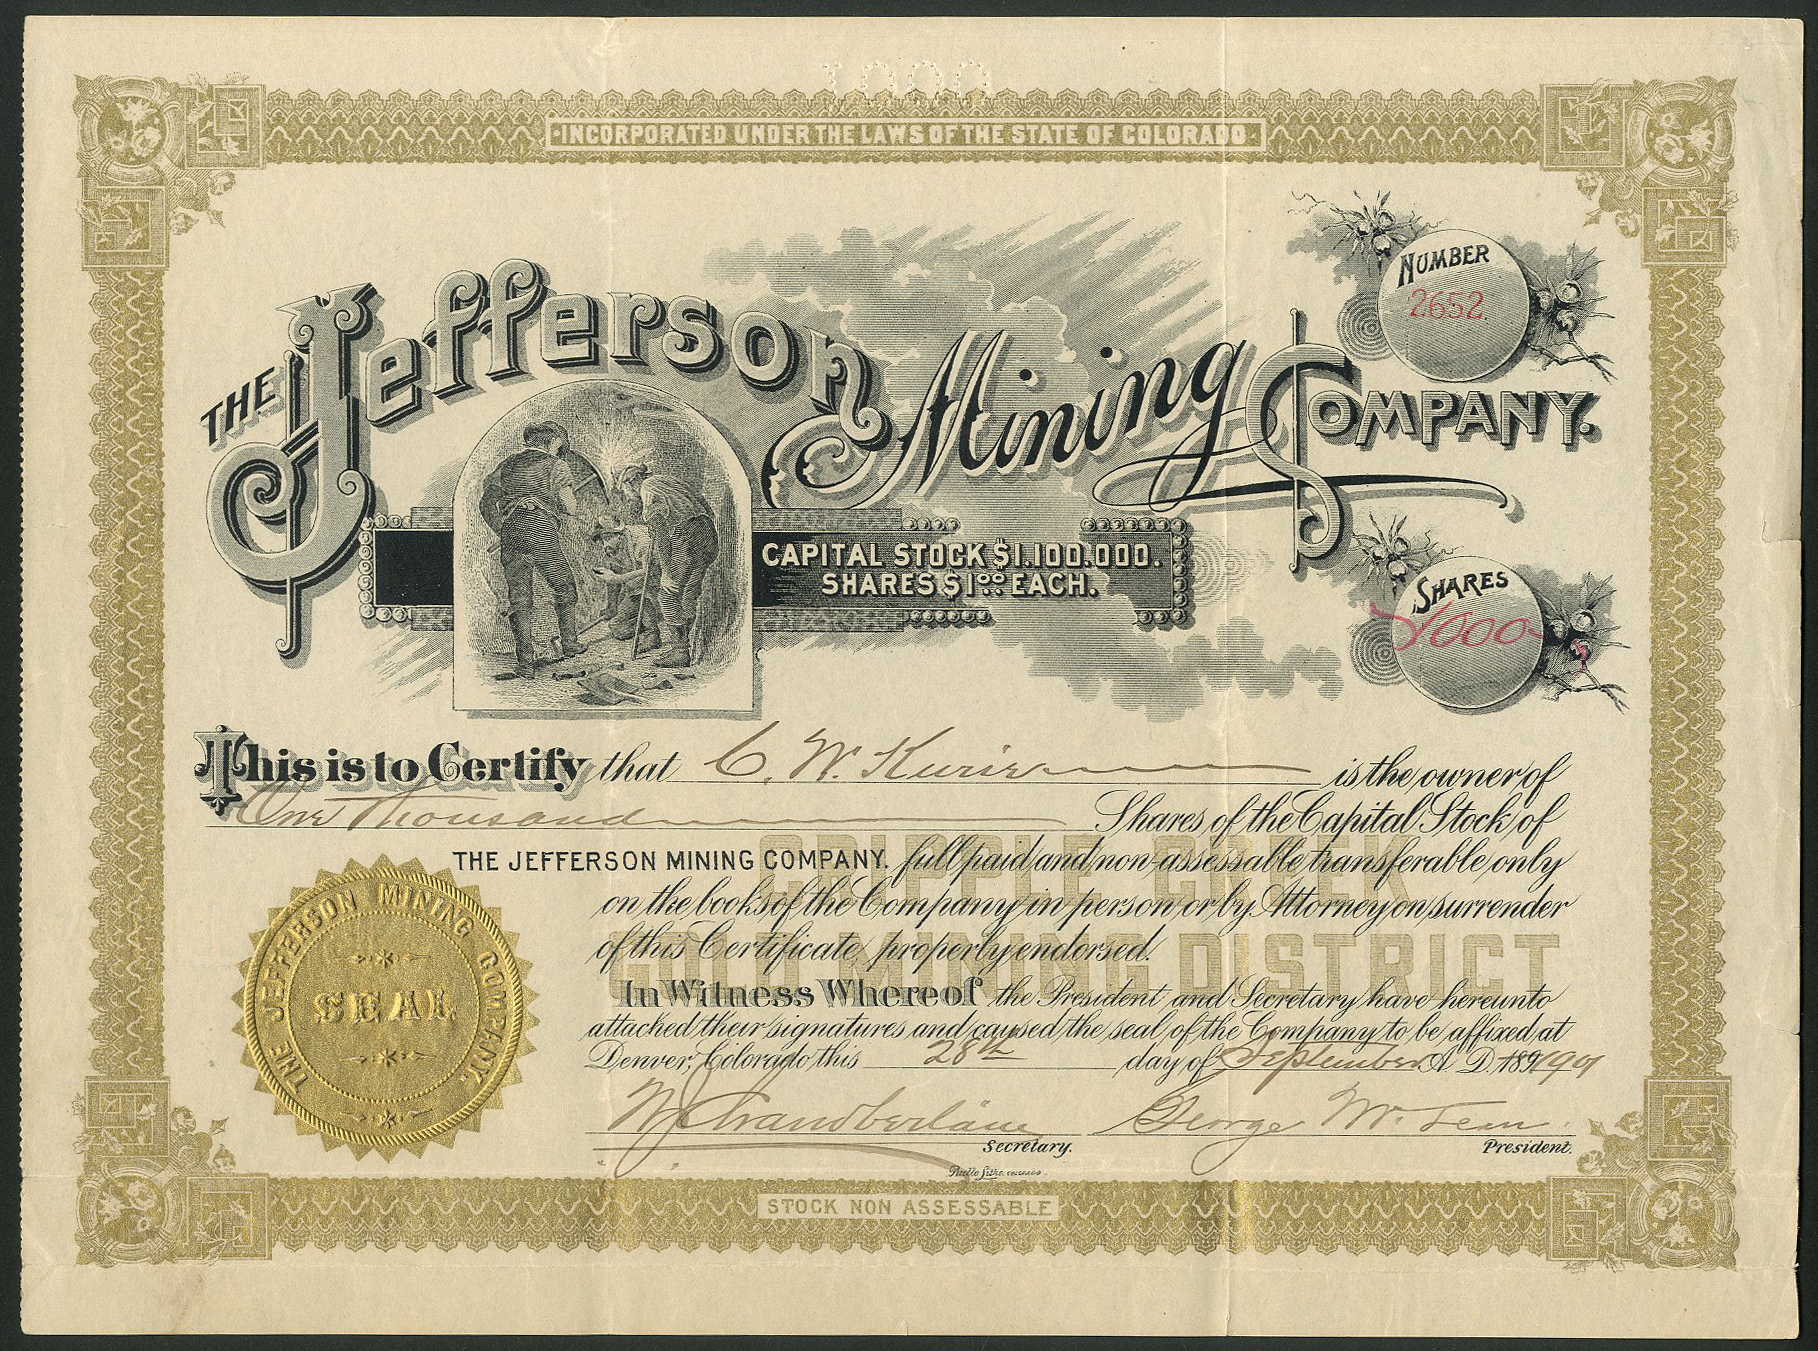 1000
INCORPORATED UNDER THE LAWS OF THE STATE OF COLORADO
NUMBER
2652
THE Jefferson Mining COMPANY.
CAPITAL STOCK $1.100.000.
SHARES $1.00 EACH.
SHARES
1000
This is to Certify that C. W. Kuris is the owner of
One Thousand Shares of the Capital Stock of
THE JEFFERSON MINING COMPANY. full paid and non-assessable transferable only
on the books of the Company in person or by Attorney on surrender
of this Certificate properly endorsed.
CRIPPLE CREEK
GOLD MINING DISTRICT
In Witness Whereof the President and Secretary have hereunto
attached their signatures and caused the seal of the Company to be affixed at
Denver, Colorado this 28th day of September A.D. 189 1901
THE JEFFERSON MINING COMPANY.
SEAL
W J Chamberlain George W.
Secretary. President.
Pueblo Litho.
STOCK NON ASSESSABLE